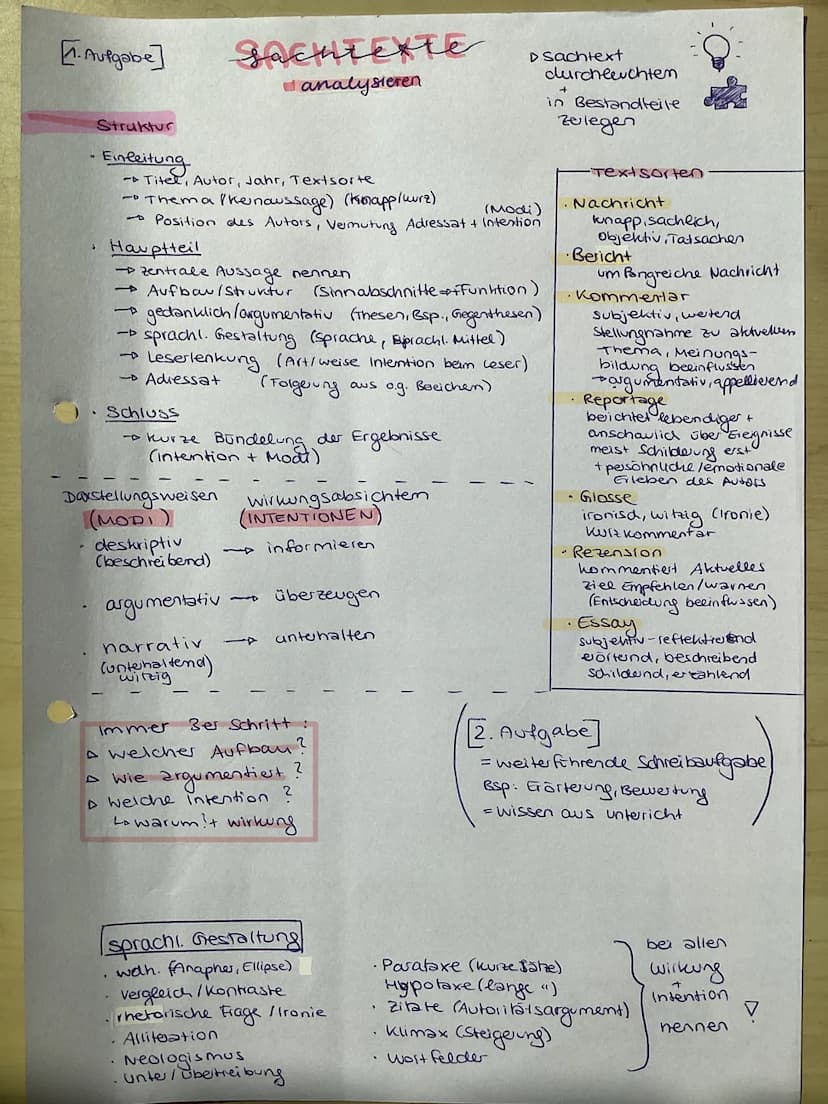 [1. Aufgabe]
SACHTEXTE
sachtexte
analysieren
▷ sachtext
durchleuchten
+
in Bestandteile
zerlegen
Struktur
· Einleitung
→ Titel, Autor, Jahr, Textsorte
→ Thema (Kernaussage) (knapp/kurz)
(Modi)
→ Position des Autors, Vermutung Adressat + Intention
· Hauptteil
→ zentrale Aussage nennen
→ Aufbau/Struktur (Sinnabschnitte → + Funktion)
→ gedanklich/argumentativ (Thesen, Bsp., Gegenthesen)
→ sprachl. Gestaltung (Sprache, sprachl. Mittel)
→ Leserlenkung (Art/weise Intention beim Leser)
→ Adressat (Folgerung aus o.g. Bereichen)
· Schluss
→ kurze Bündelung der Ergebnisse
(Intention + Modi)
Textsorten
· Nachricht
knapp, sachlich,
objektiv, Tatsachen
· Bericht
umfangreiche Nachricht
· Kommentar
subjektiv, wertend
Stellungnahme zu aktuellem
Thema, Meinungs-
bildung beeinflussen
→ argumentativ, appellierend
· Reportage
berichtet lebendiger +
anschaulich über Ereignisse
meist Schilderung erst
+ persönliche/emotionale
Erleben des Autors
· Glosse
ironisch, witzig (Ironie)
Kurzkommentar
· Rezension
kommentiert Aktuelles
Ziel Empfehlen/warnen
(Entscheidung beeinflussen)
· Essay
subjektiv-reflektierend
erörternd, beschreibend
schildernd, erzählend
Darstellungsweisen wirkungsabsichten
(MODI) (INTENTIONEN)
· deskriptiv → informieren
(beschreibend)
· argumentativ → überzeugen
· narrativ → unterhalten
(unterhaltend)
witzig
immer 3er Schritt:
▷ welcher Aufbau?
▷ wie argumentiert?
▷ welche intention?
↳ warum? + wirkung
[2. Aufgabe]
= weiterführende Schreibaufgabe
Bsp: Erörterung, Bewertung
= wissen aus unterricht
sprachl. Gestaltung
· wdh. (Anapher, Ellipse)
· vergleich/Kontraste
· rhetorische Frage/Ironie
· Alliteration
· Neologismus
· unter/übertreibung
· Parataxe (kurze Sätze)
Hypotaxe (lange ")
· Zitate (Autoritätsargument)
· Klimax (Steigerung)
· wortfelder
bei allen
wirkung
+
intention
nennen !